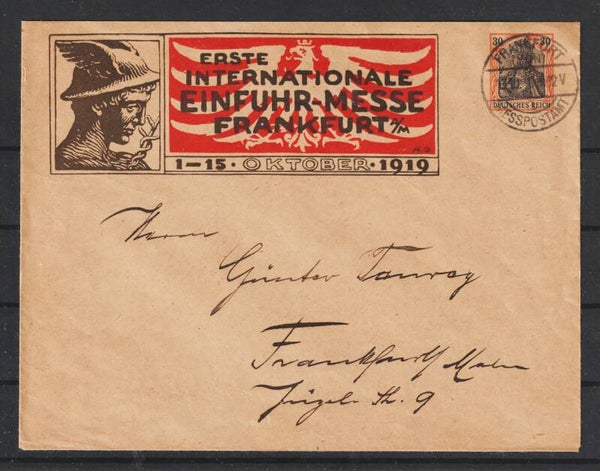 ERSTE
INTERNATIONALE
EINFUHR-MESSE
FRANKFURT a/M
1-15 · OKTOBER · 1919
30 30
DEUTSCHES REICH
FRANKFURT
Herrn
Günter
Frankfurt Main
9